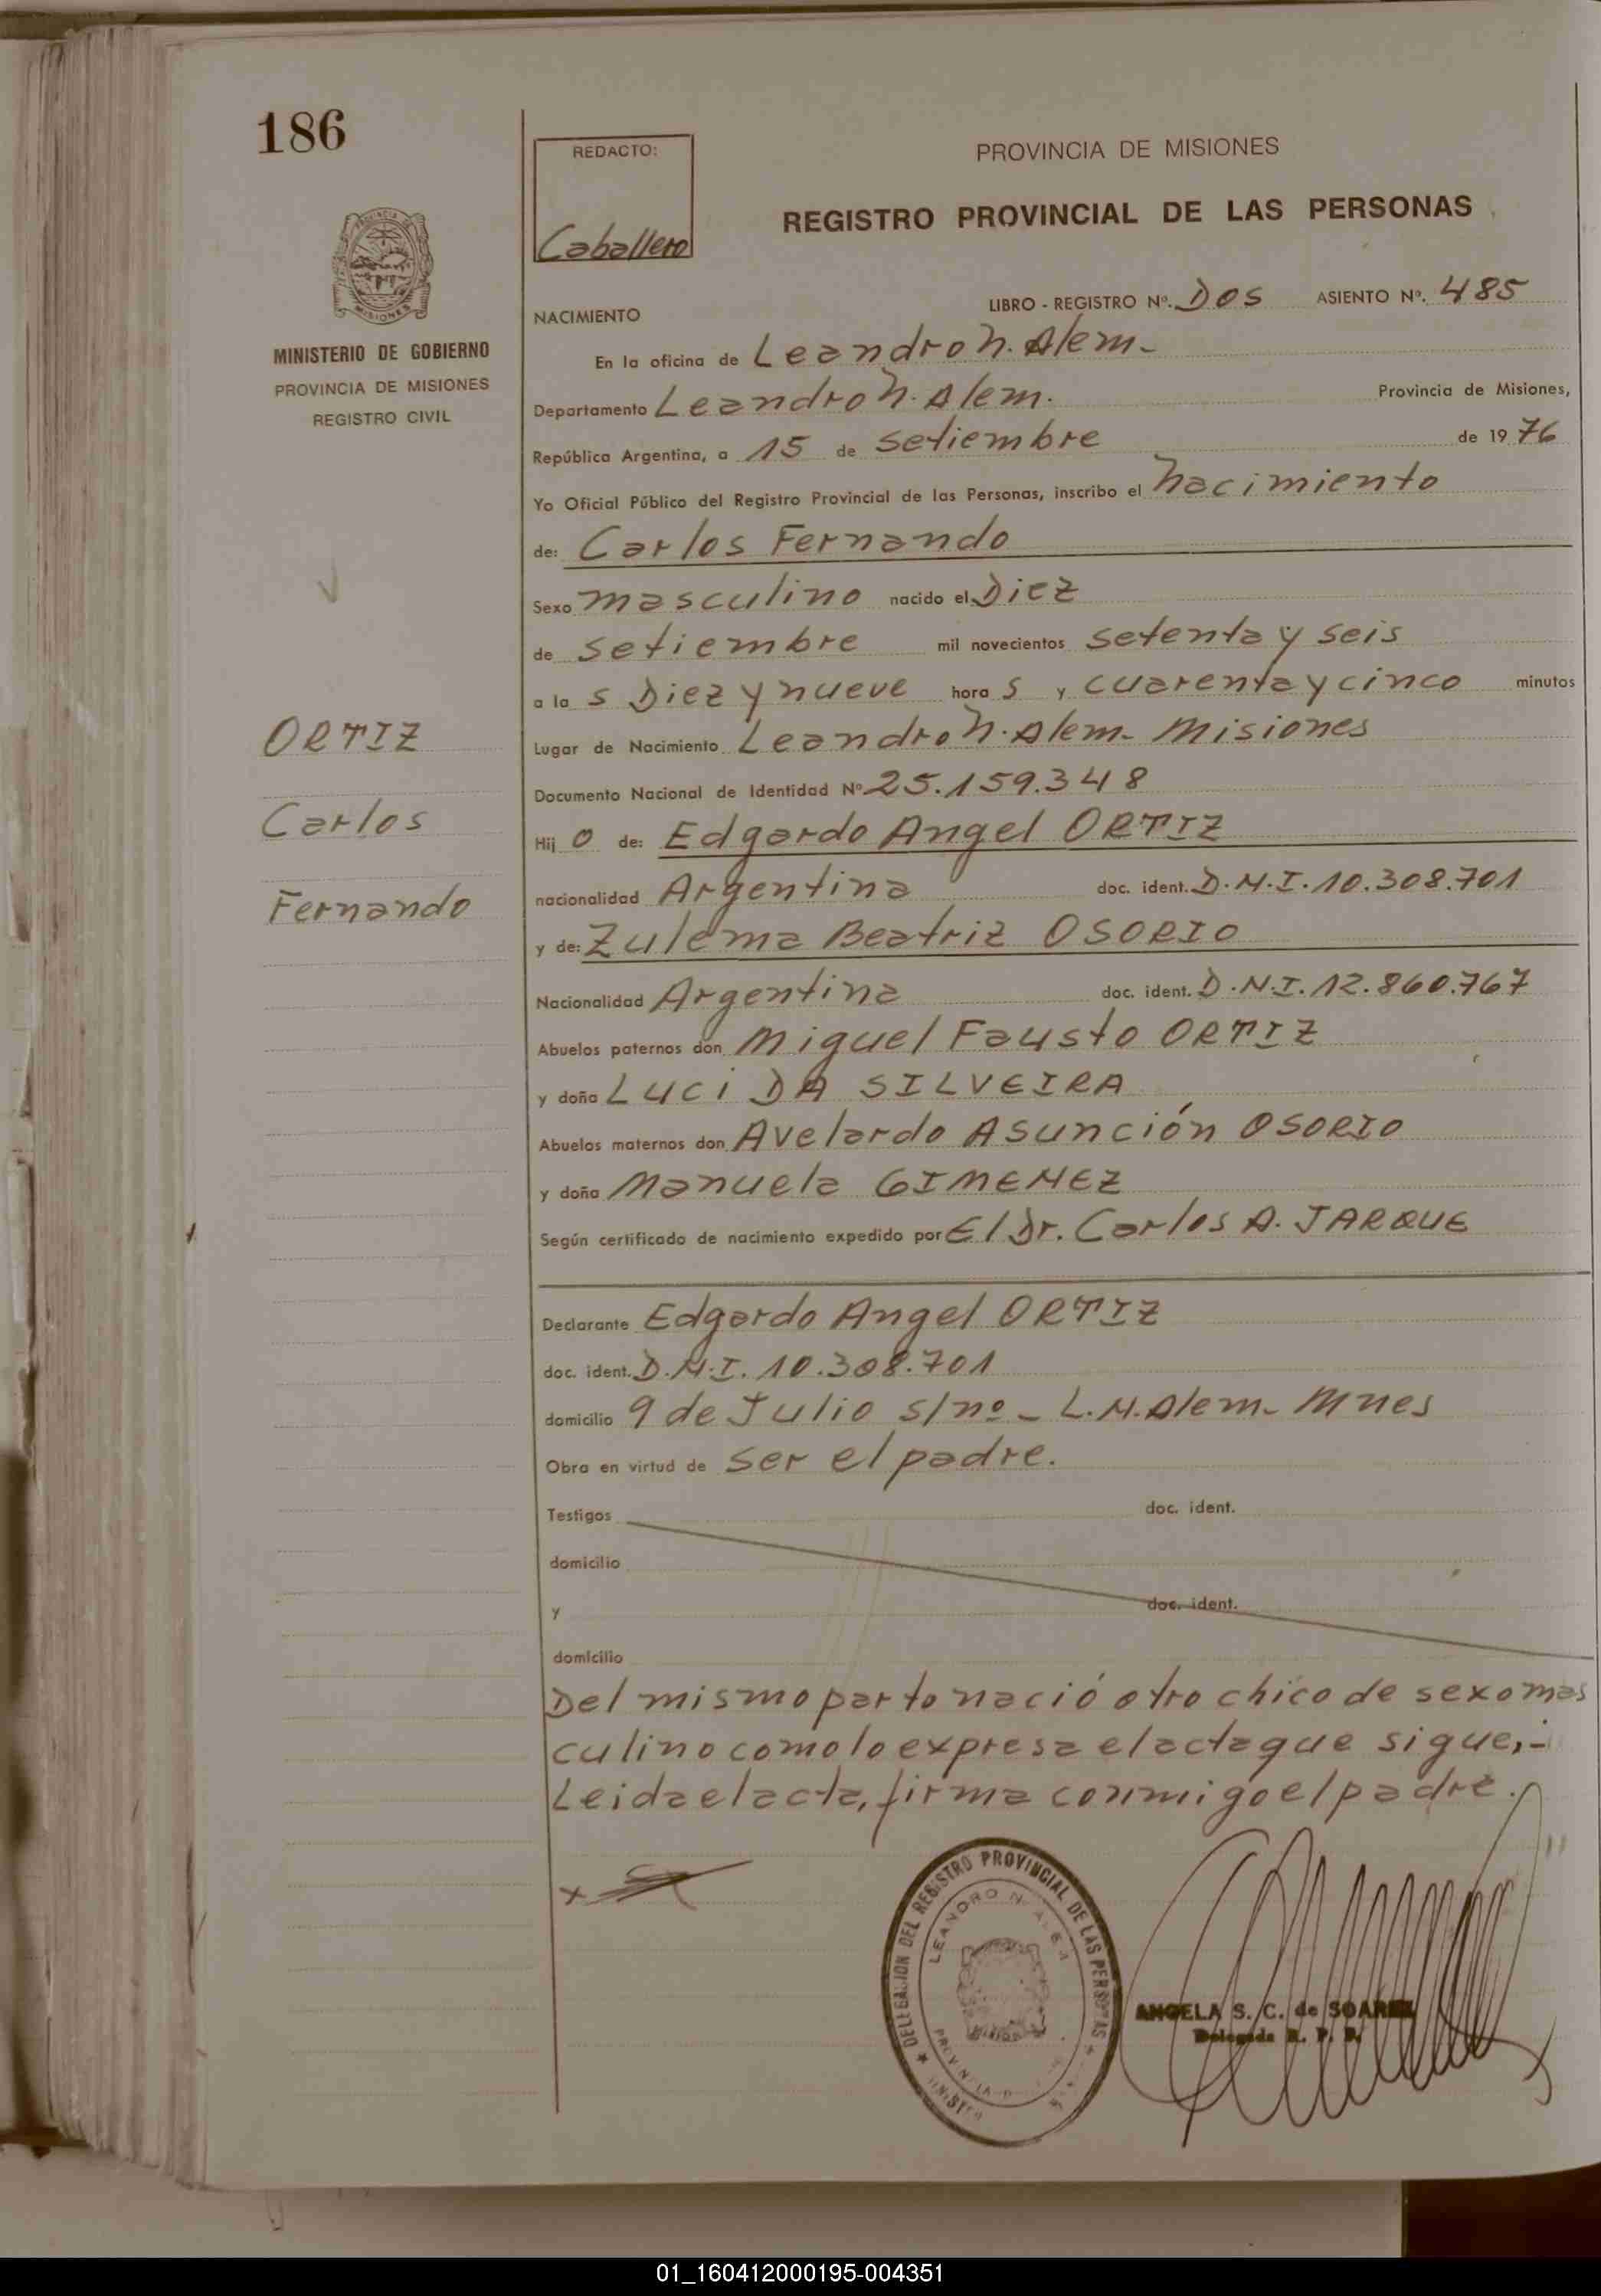 186
REDACTO:
Caballero
PROVINCIA DE MISIONES
REGISTRO PROVINCIAL DE LAS PERSONAS
MISIONES
MINISTERIO DE GOBIERNO
PROVINCIA DE MISIONES
REGISTRO CIVIL
LIBRO - REGISTRO Nº. Dos ASIENTO Nº. 485
NACIMIENTO
En la oficina de Leandro N. Alem-
Departamento Leandro N. Alem. Provincia de Misiones,
República Argentina, a 15 de setiembre de 1976
Yo Oficial Público del Registro Provincial de las Personas, inscribo el nacimiento
de: Carlos Fernando
Sexo masculino nacido el Diez
de setiembre mil novecientos setenta y seis
a la s Diez y nueve hora s y cuarenta y cinco minutos
Lugar de Nacimiento Leandro N. Alem- Misiones
Documento Nacional de Identidad Nº 25.159.348
Hij o de: Edgardo Angel ORTIZ
nacionalidad Argentina doc. ident. D.N.I. 10.308.701
y de: Zulema Beatriz OSORIO
Nacionalidad Argentina doc. ident. D.N.I. 12.860.767
Abuelos paternos don Miguel Fausto ORTIZ
y doña Luci DA SILVEIRA
Abuelos maternos don Avelardo Asunción OSORIO
y doña Manuela GIMENEZ
Según certificado de nacimiento expedido por El Dr. Carlos A. JARQUE
ORTIZ
Carlos
Fernando
Declarante Edgardo Angel ORTIZ
doc. ident. D.N.I. 10.308.701
domicilio 9 de Julio s/nº - L.N. Alem- Mnes
Obra en virtud de ser el padre.
Testigos doc. ident.
domicilio
y doc. ident.
domicilio
Del mismo parto nació otro chico de sexo mas
culino como lo expresa el acta que sigue,-
Leida el acta, firma conmigo el padre.
DELEGACION DEL REGISTRO PROVINCIAL DE LAS PERSONAS
LEANDRO N. ALEM
ANGELA S. C. de SOAREZ
Delegada R. P. P.
01_160412000195-004351